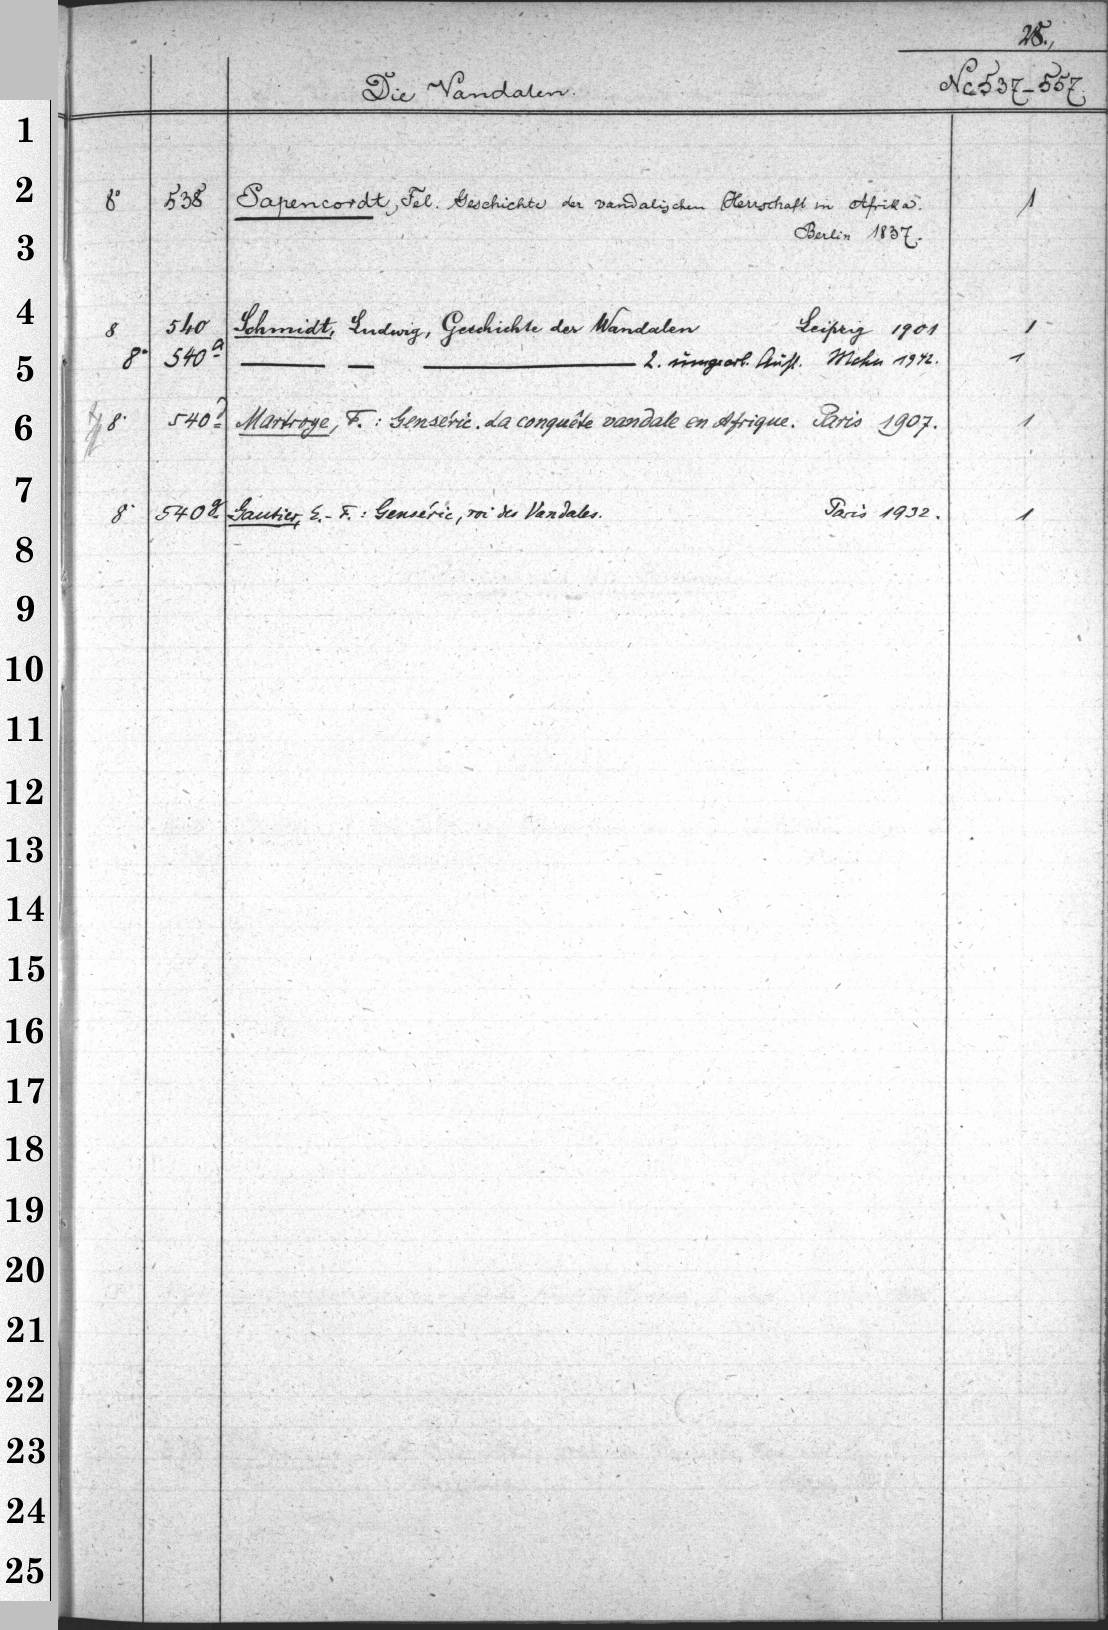 25.,
Die Vandalen.
Nc 537-557.
1
2
8° 538 Papencordt, Fel. Geschichte der vandalischen Herrschaft in Afrika. 1
Berlin 1837.
3
4
8 540 Schmidt, Ludwig, Geschichte der Wandalen Leipzig 1901 1
8° 540a 2. umgearb. Aufl. Mchn 1942. 1
5
6
8° 540 Martroye, F.: Genséric. La conquête vandale en Afrique. Paris 1907. 1
7
8° 540g Gautier, E.-F.: Genséric, roi des Vandales. Paris 1932. 1
8
9
10
11
12
13
14
15
16
17
18
19
20
21
22
23
24
25